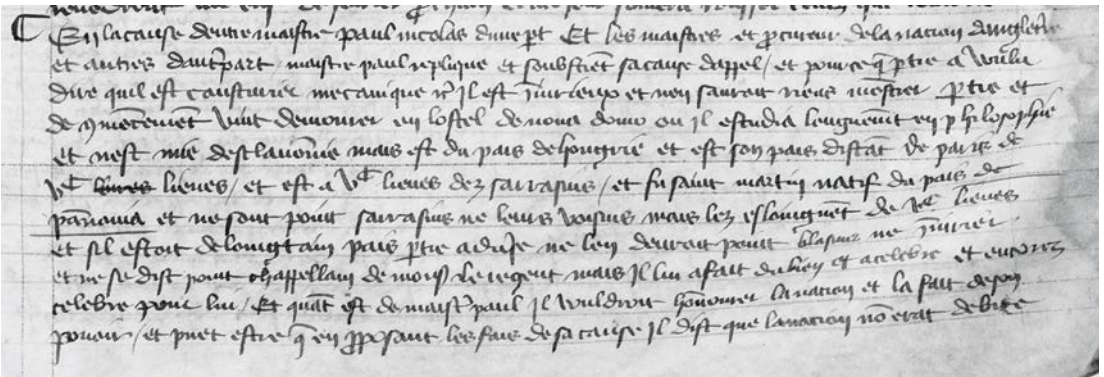 En la cause dentre maistre paul nicolas dune pt Et les maistres et pcureur de la nacion dangletre
et autres dautrpart maistre paul replique et soubstient sa cause dappel / et pource q ptie a voulu
dire quil est couturier mecanique il est iniurieux et nen sauroit riens monstrer ptie et
de 9mencement vint demourer en lostel de nova domo ou il estudia longuemt en philosophie
et nest mie desclavonie mais est du pais de hongrie et est son pais distat de paris de
lieues / et est a lieues dez sarrasins / et fu saint martin natif du pais de
panonia et ne sont point sarrasins ne leurs voisins mais lez esloingnet de lieues
et sil estoit de loingtain pais ptie adverse ne len devroit point blasmer ne iniurier
et ne se dist point chappellain de mons le regent mais il lui a fait du bien et a celebre et encorez
celebre pour lui / Et quat est de maistr paul il vouldroit honnourer la nacion et la fait de son
pouoir / et puet estre q en pposant les fais de sa cause il dist que la nacion no erat debite